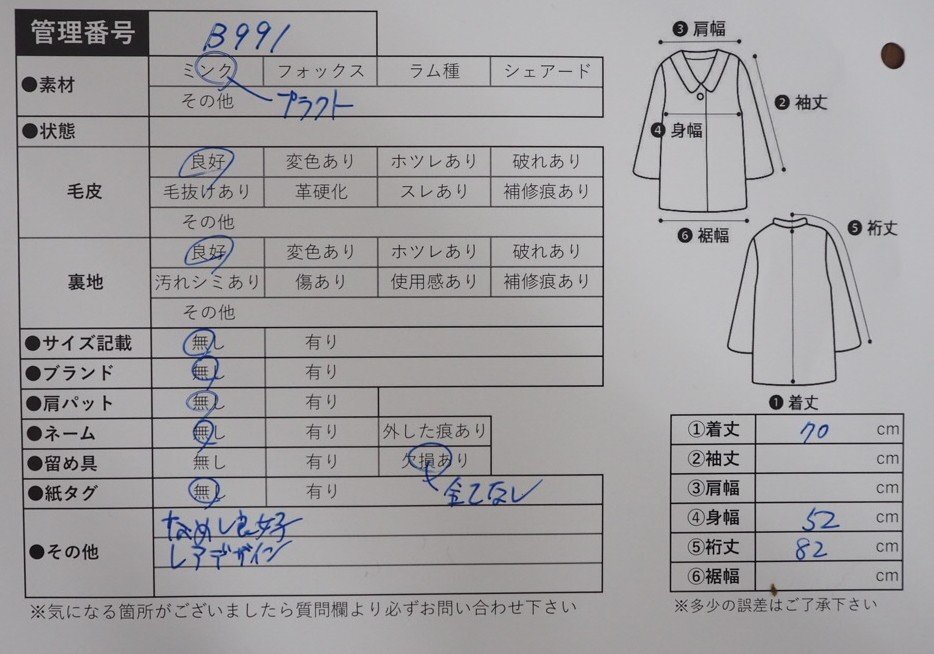 管理番号 B991
●素材 ミンク フォックス ラム種 シェアード
その他 プラフト
●状態
毛皮 良好 変色あり ホツレあり 破れあり
毛抜けあり 革硬化 スレあり 補修痕あり
その他
裏地 良好 変色あり ホツレあり 破れあり
汚れシミあり 傷あり 使用感あり 補修痕あり
その他
●サイズ記載 無し 有り
●ブランド 無し 有り
●肩パット 無し 有り
●ネーム 無し 有り 外した痕あり
●留め具 無し 有り 欠損あり
●紙タグ 無し 有り 全てなし
●その他 なめし良好
レアデザイン
※気になる箇所がございましたら質問欄より必ずお問い合わせ下さい
❸肩幅
❷袖丈
❹身幅
❻裾幅
❺裄丈
❶着丈
①着丈 70 cm
②袖丈 cm
③肩幅 cm
④身幅 52 cm
⑤裄丈 82 cm
⑥裾幅 cm
※多少の誤差はご了承下さい